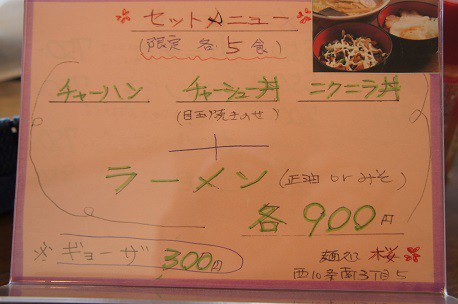 セットメニュー
(限定 各5食)
チャーハン チャーシュー丼 ニクニラ丼
(目玉焼きのせ)
＋
ラーメン (正油 or みそ)
各 900円
※ ギョーザ 300円
麺処 桜
西10条南3丁目5